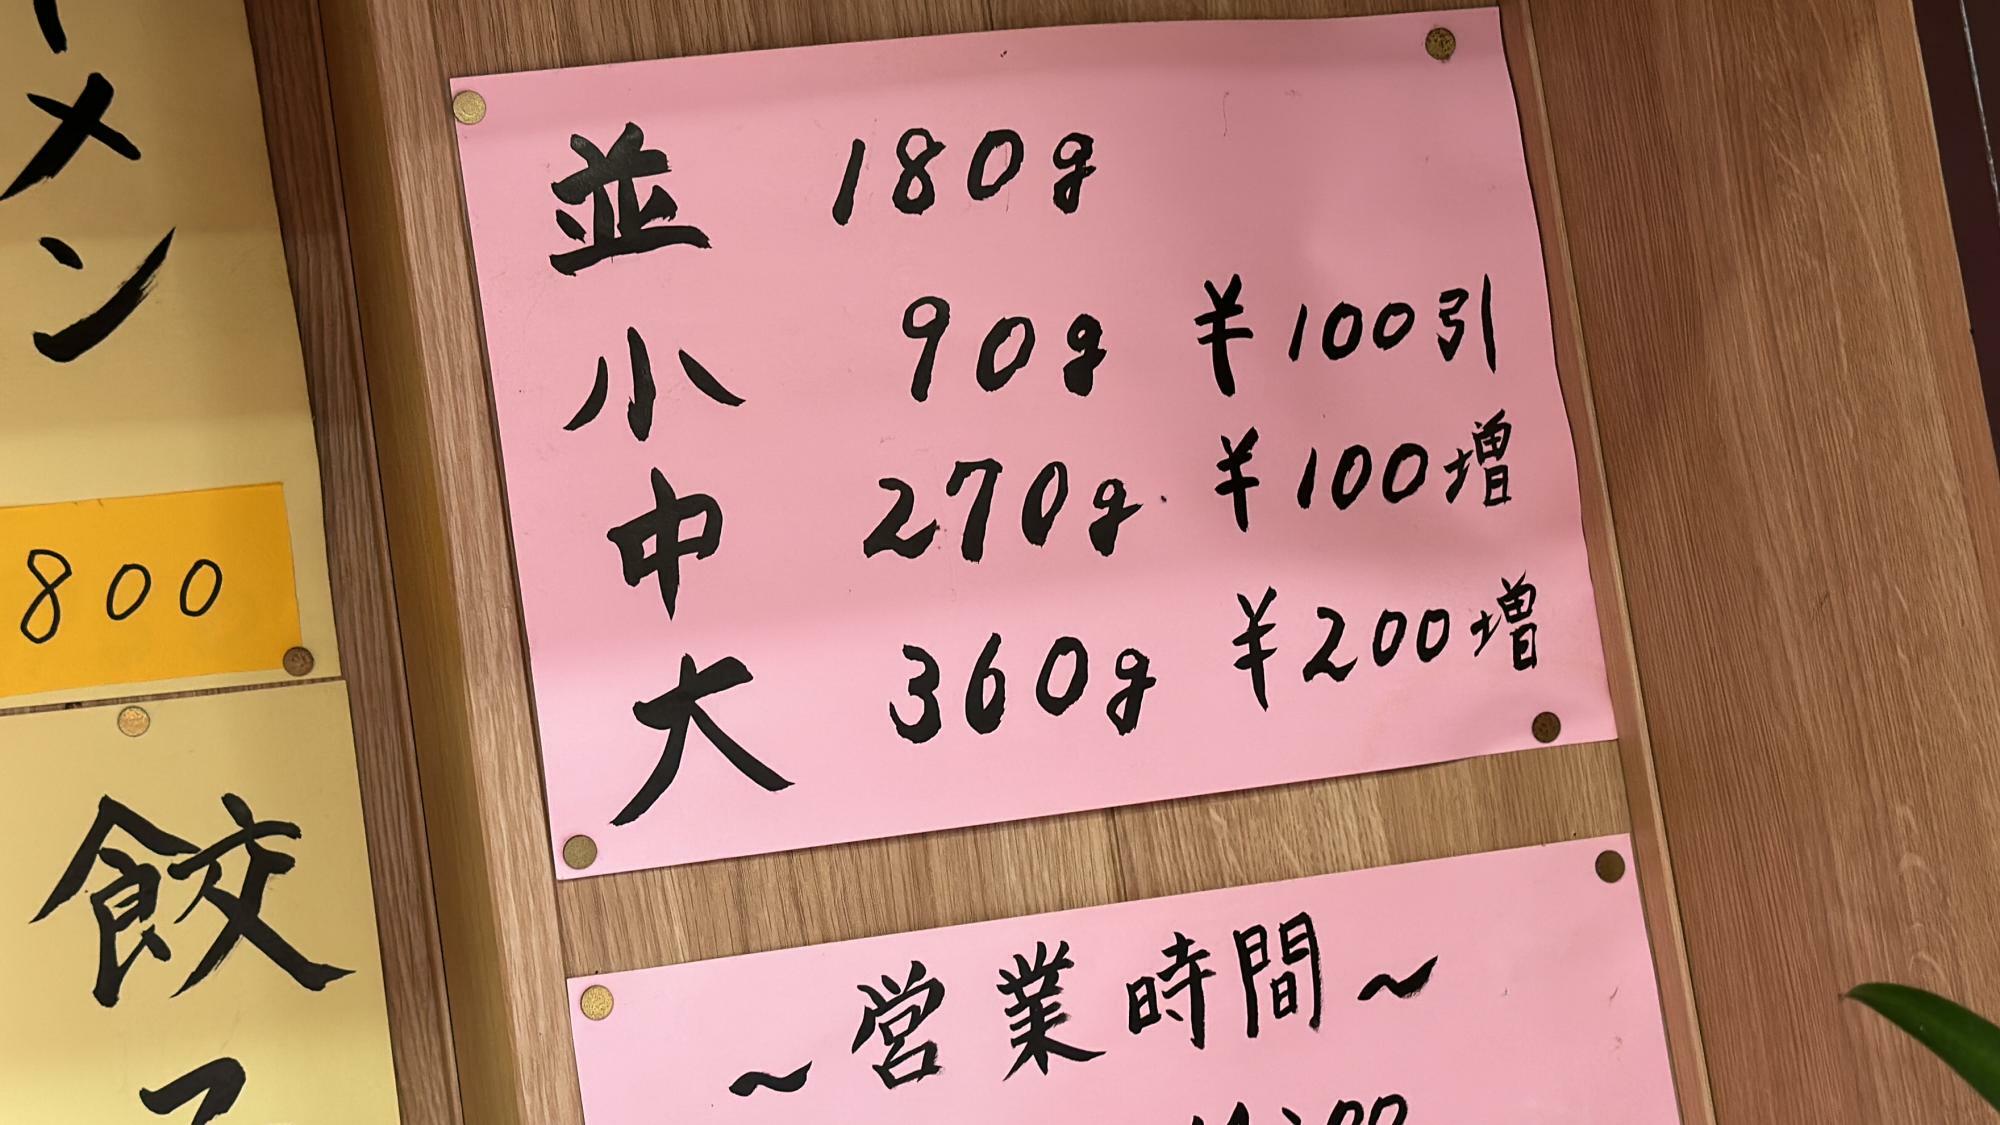 ーメン
800
餃
並 180g
小 90g ¥100引
中 270g ¥100増
大 360g ¥200増
~営業時間~